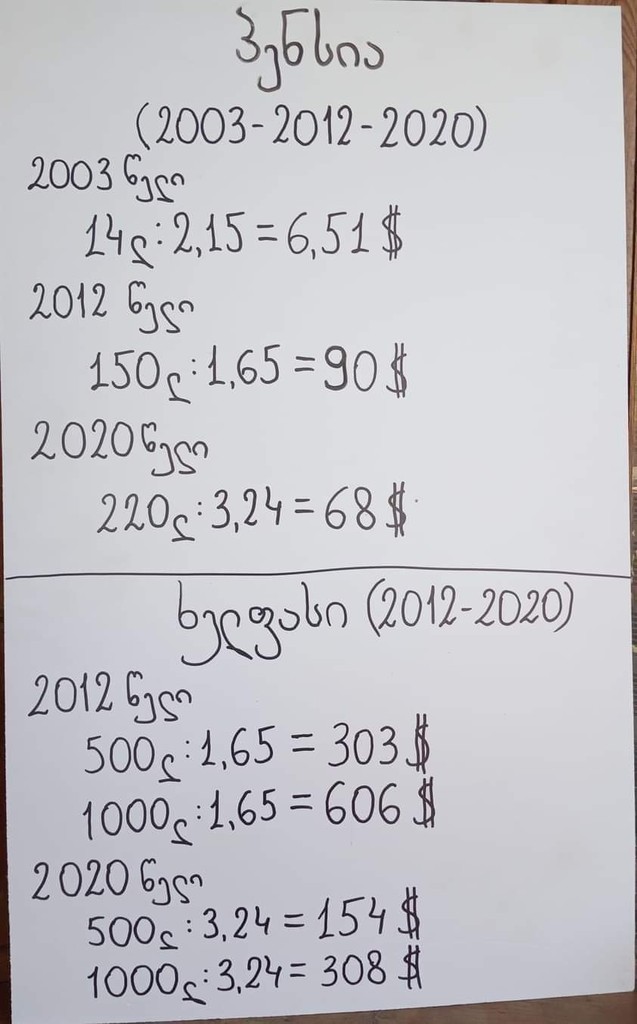 პენსია
(2003-2012-2020)
2003 წელი
14ლ:2,15=6,51$
2012 წელი
150ლ:1,65=90$
2020 წელი
220ლ:3,24=68$
ხელფასი (2012-2020)
2012 წელი
500ლ:1,65=303$
1000ლ:1,65=606$
2020 წელი
500ლ:3,24=154$
1000ლ:3,24=308$